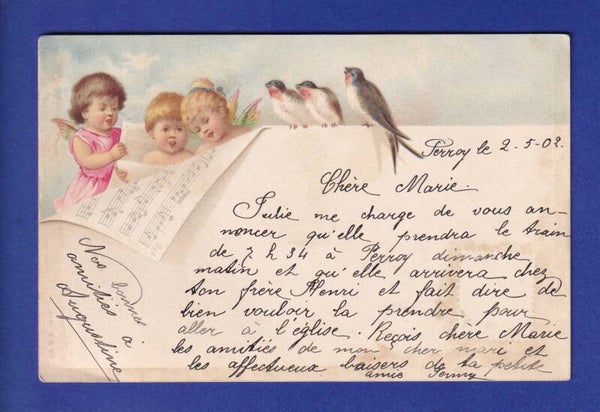 Perroy le 2-5-02.
Chère Marie.
Julie me charge de vous an-
noncer qu'elle prendra le train
de 7 h 34 à Perroy dimanche
matin et qu'elle arrivera chez
ton frère Henri et fait dire de
bien vouloir la prendre pour
aller à l'église. Reçois chère Marie
les amitiés de mon cher mari et
les affectueux baisers de ta petite
amie Jenny
Nos bonnes
amitiés à
Augustine